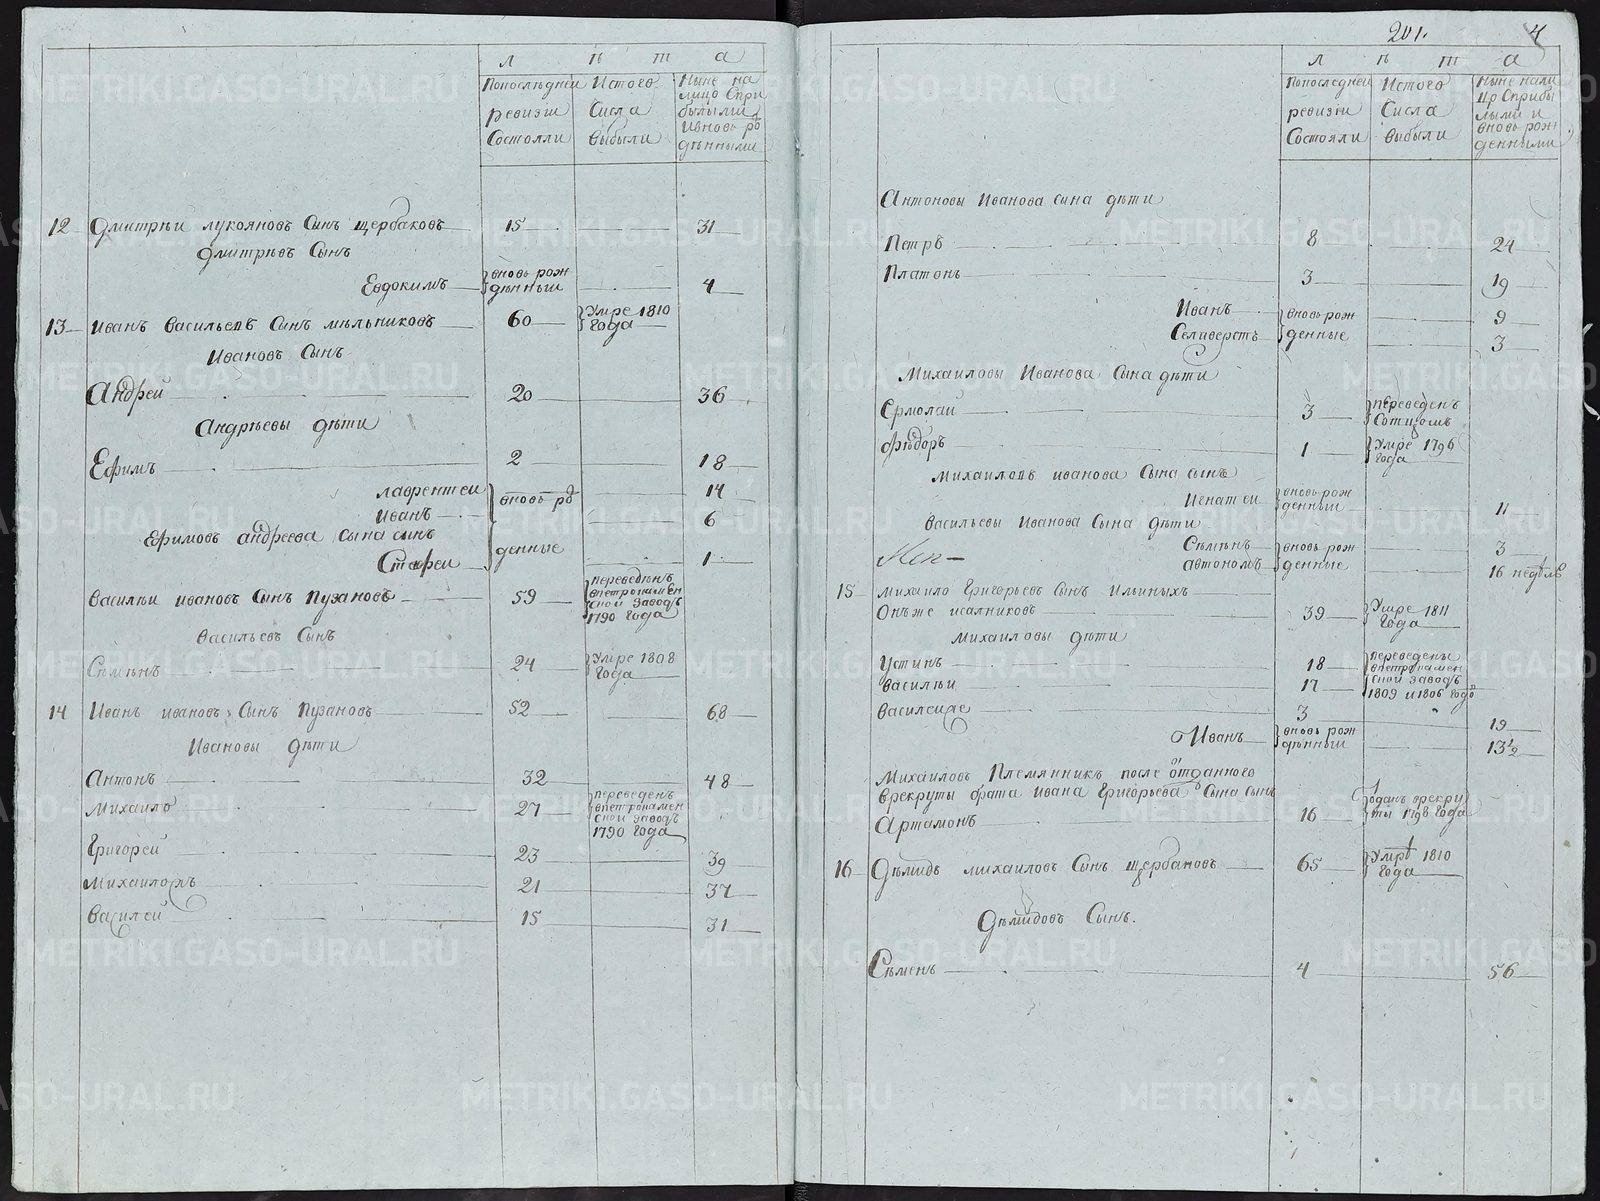 Л ѣ т а
Попослѣдней ревизiи Состояли
Истого Числа выбыли
Ныне на лицо Сприбылыми Ивновь рожденными
12 Дмитрѣи лукояновъ Сынъ щербаковъ 15 31
Дмитрѣевъ Сынъ
Евдокимъ вновь рожденныи 4
13 Иванъ Васильевъ Сынъ мѣльниковъ 60 Умре 1810 года
Ивановъ Сынъ
Андрей 20 36
Андрѣевы дѣти
Ефимъ 2 18
лаврентеи вновь рожденные 14
Иванъ 6
Ефимовъ андреева сына сынъ
1
Василѣи ивановъ Сынъ Пузановъ 59 переведѣнъ впетрокаменской заводъ 1790 года
Васильевъ Сынъ
Семѣнъ 24 Умре 1808 года
14 Иванъ ивановъ Сынъ Пузановъ 52 68
Ивановы дѣти
Антонъ 32 48
Михайло 27 переведенъ впетрокаменской заводъ 1790 года
Григорей 23 39
Михайло 21 37
Василей 15 31
201. 4
Л ѣ т а
Попоследней ревизiи Состояли
Истого Числа выбыли
Ныне налицо Сприбылыми и вновь рожденными
Антоновы Иванова сина дѣти
Петръ 8 24
Платонъ 3 19
Иванъ вновь рожденные 9
Селиверстъ 3
Михаиловы Иванова Сына дѣти
Ермолаи 3 переведенъ Сотцомъ
Фѣдоръ 1 Умре 1796 года
Михаиловъ иванова Сына сынъ
Игнатеи вновь рожденныи 11
Васильевы Иванова Сына дѣти
Сѣмѣнъ вновь рожденные 3
автономъ 16 недѣль
15 Михаило Григорьевъ Сынъ Ильиныхъ
Онъже исалниковъ 39 Умре 1811 года
Михаиловы дѣти
Устинъ 18 переведены впетрокаменской заводъ 1809 и 1806 годо
Василѣи 17
3 19
Иванъ вновь рожденныи 13½
Михаиловъ Племянникъ после отданного
Врекруты брата ивана Григорьева Сына сынъ
Артамонъ 16 Отданъ врекруты 1798 года
16 Дѣмидъ михаиловъ Сынъ щербаковъ 65 Умре 1810 года
Дѣмидовъ Сынъ.
Сѣменъ 4 56
METRIKI.GASO-URAL.RU